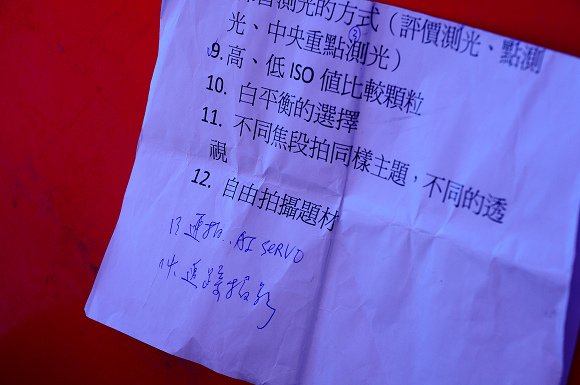 測光的方式（評價測光、點測
②
光、中央重點測光）
9. 高、低 ISO 值比較顆粒
10. 白平衡的選擇
11. 不同焦段拍同樣主題，不同的透
視
12. 自由拍攝題材
13 連拍. AI SERVO
14. 追蹤攝影